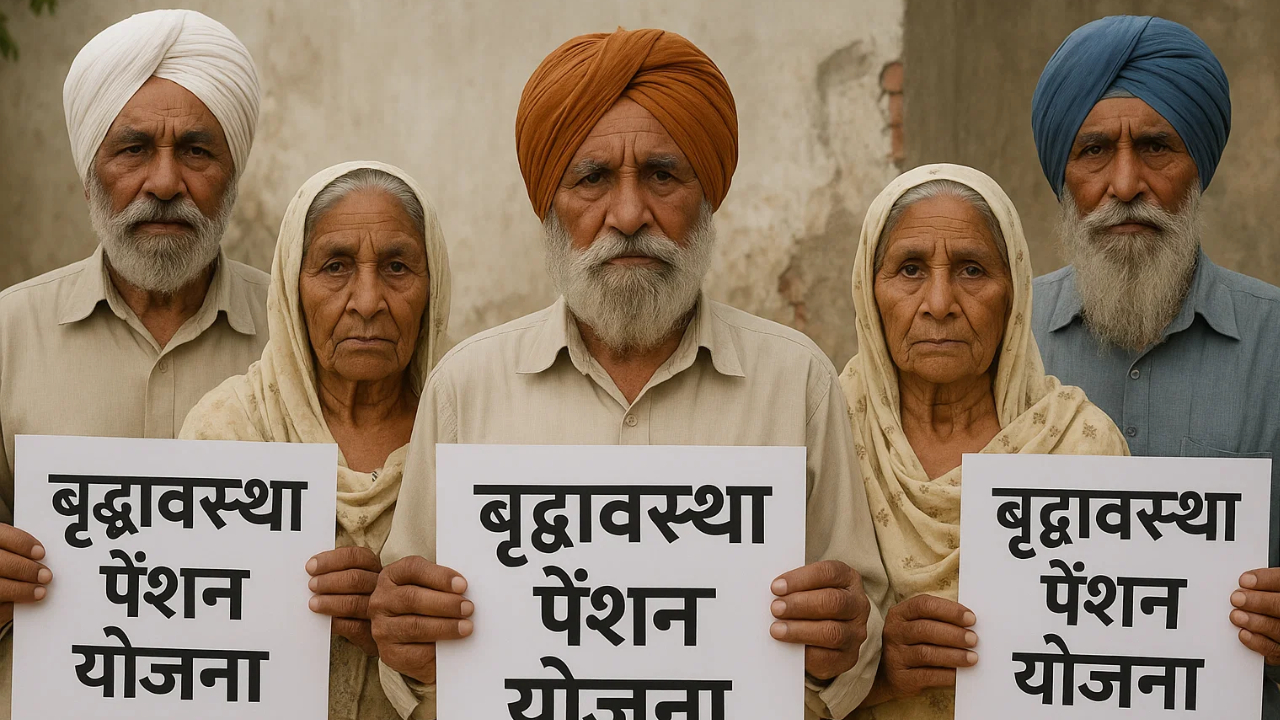 बृद्धावस्था
पेंशन
योजना
बृद्वावस्था
पेंशन
योजना
बृद्वावस्था
पेंशन
योजना